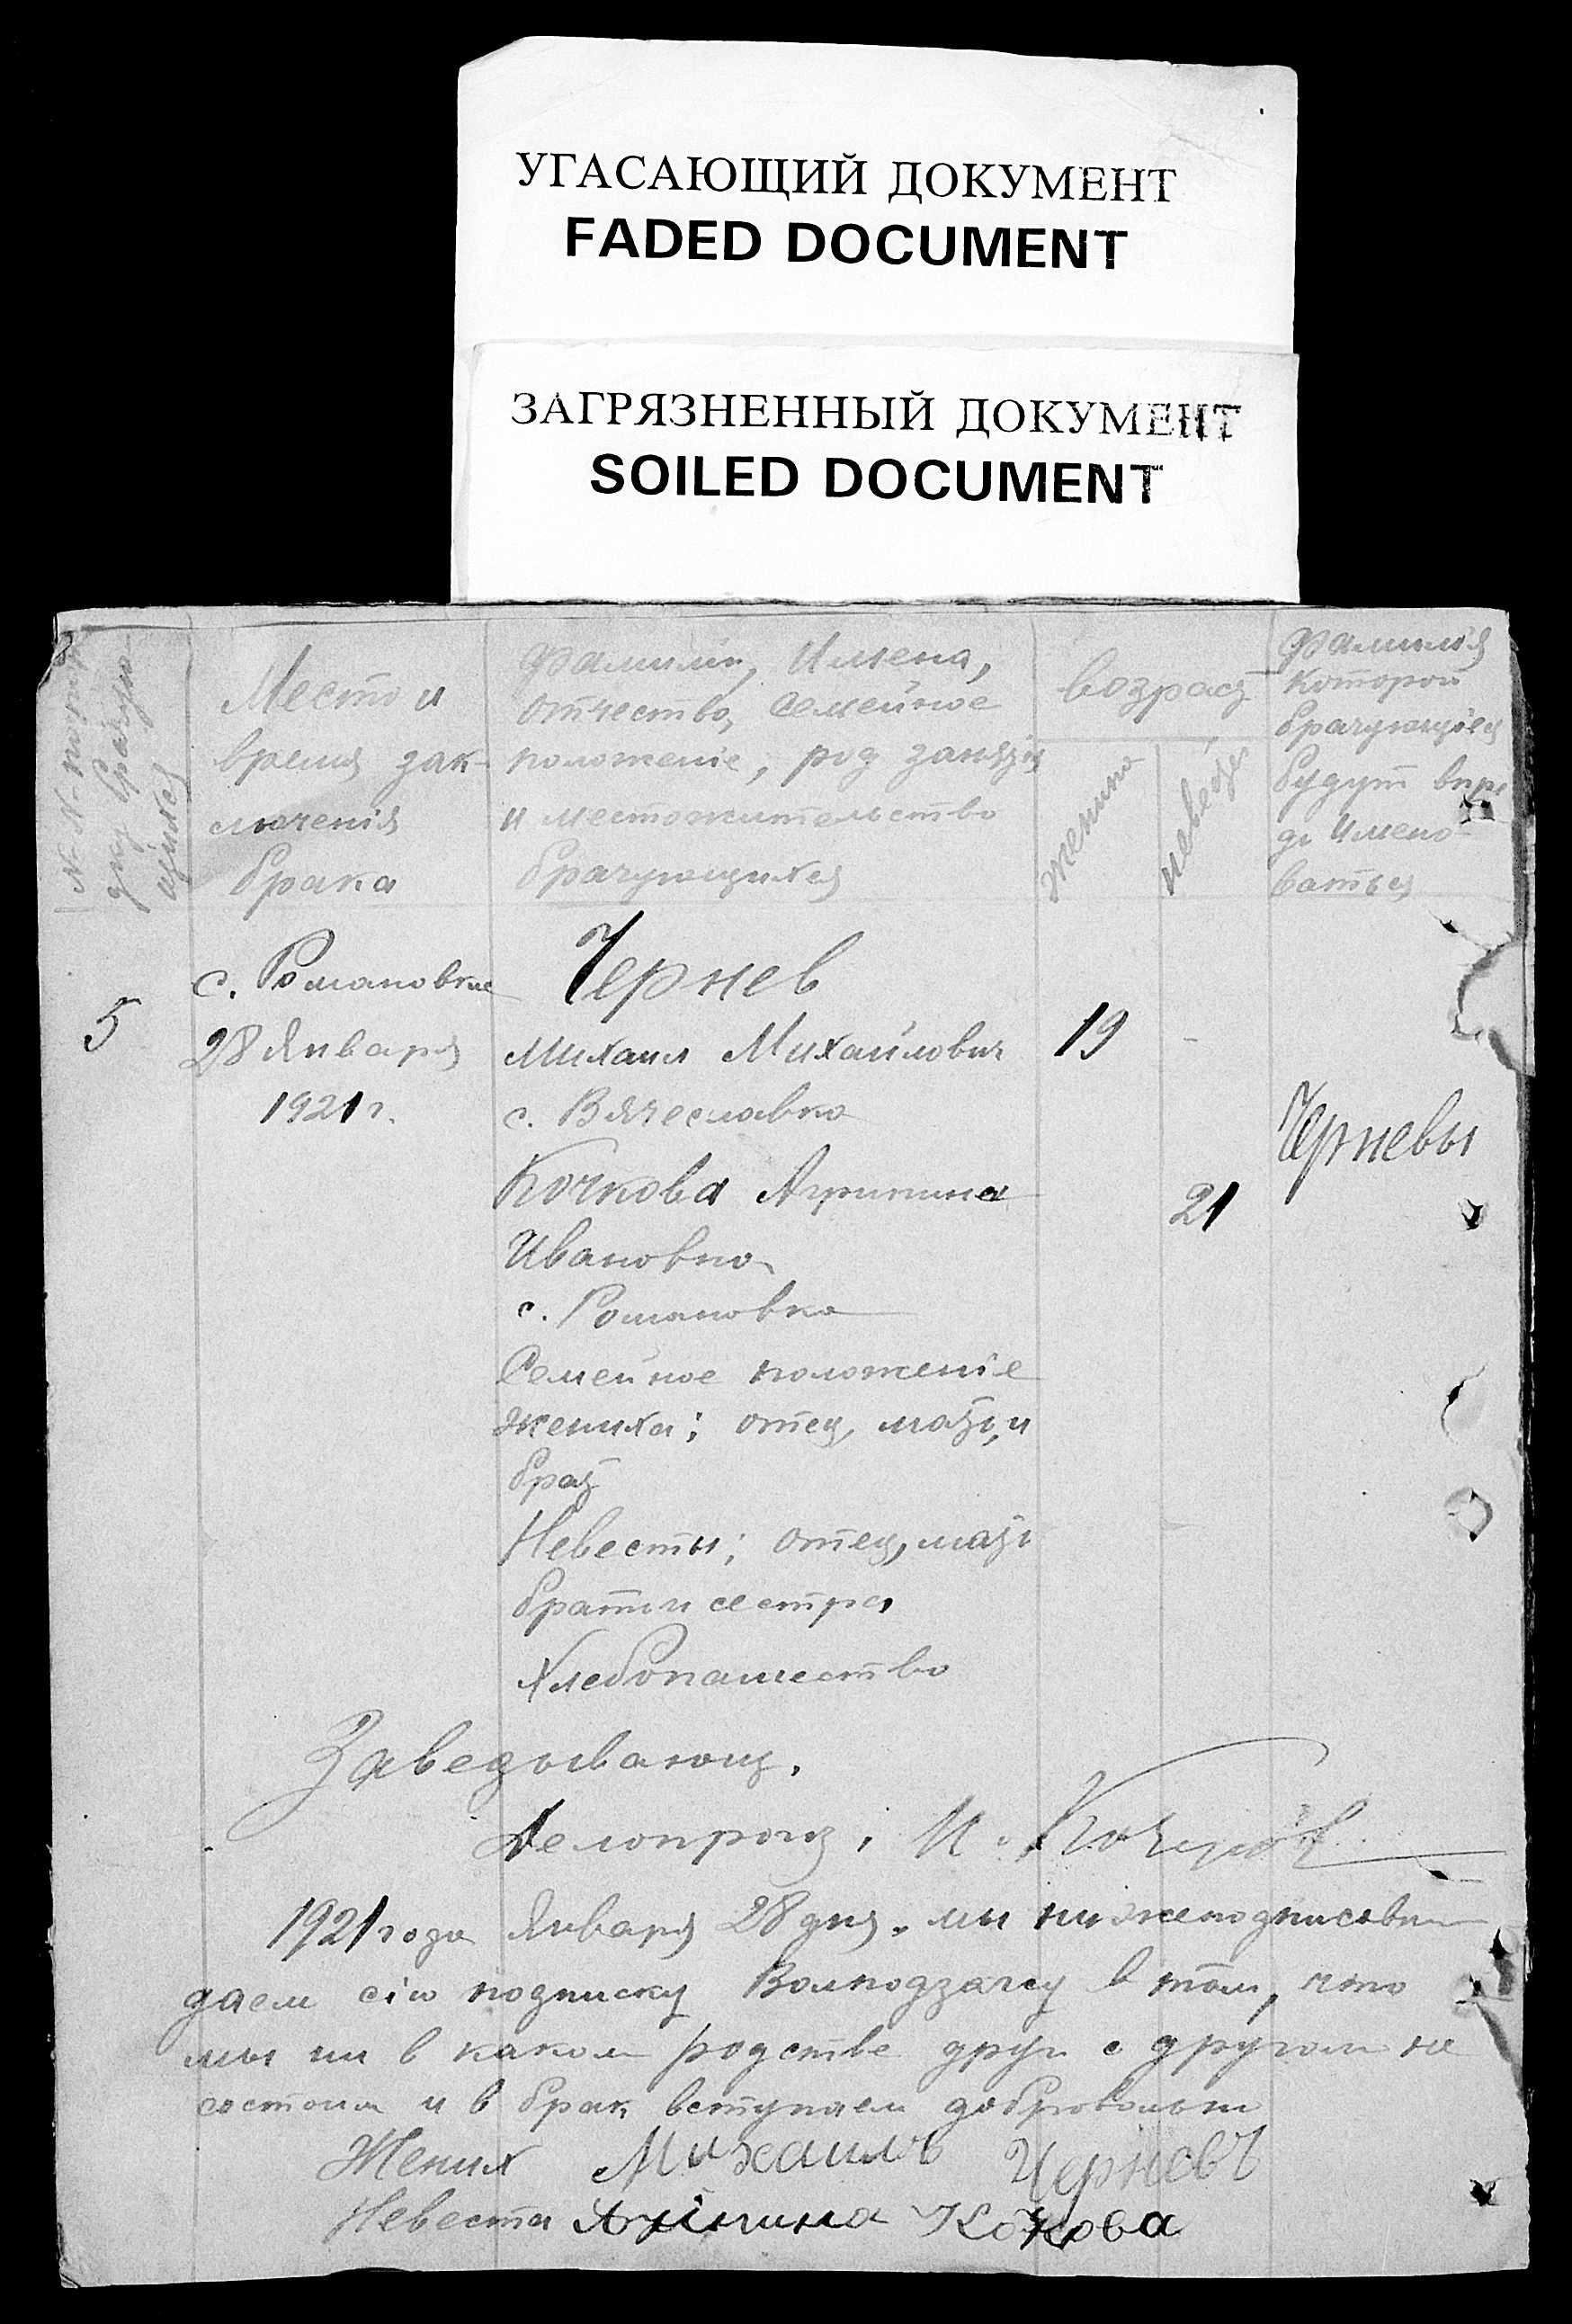 УГАСАЮЩИЙ ДОКУМЕНТ
FADED DOCUMENT
ЗАГРЯЗНЕННЫЙ ДОКУМЕНТ
SOILED DOCUMENT
Место и
время зак-
лючения
брака
Фамилии, Имена,
отчество, Семейное
положенiе, род
и местожительство
брачующихся
возраст
жениха
невесты
Фамилия
которой
брачующiеся
будут впре
дь Имено-
ваться
5
с. Романовка
28 Января
1921 г.
Чернев
Михаил Михайлович
с. Вячеславка
Кочкова Агрипина
Ивановна
с. Романовка
Семейное положенiе
жениха; отец, мать, и
брат
Невесты; отец, мать
брат и сестра
Хлебопашество
19
-
21
Черневы
Заведывающ.
Делопроиз. И.
1921 года Января 28 дня. мы нижеподписавши
даем сiю подписку в том, что
мы ни в каком родстве друг с другом не
состоим и в брак вступаем добровольно
Жених Михаилъ Черневъ
Невеста Кочкова